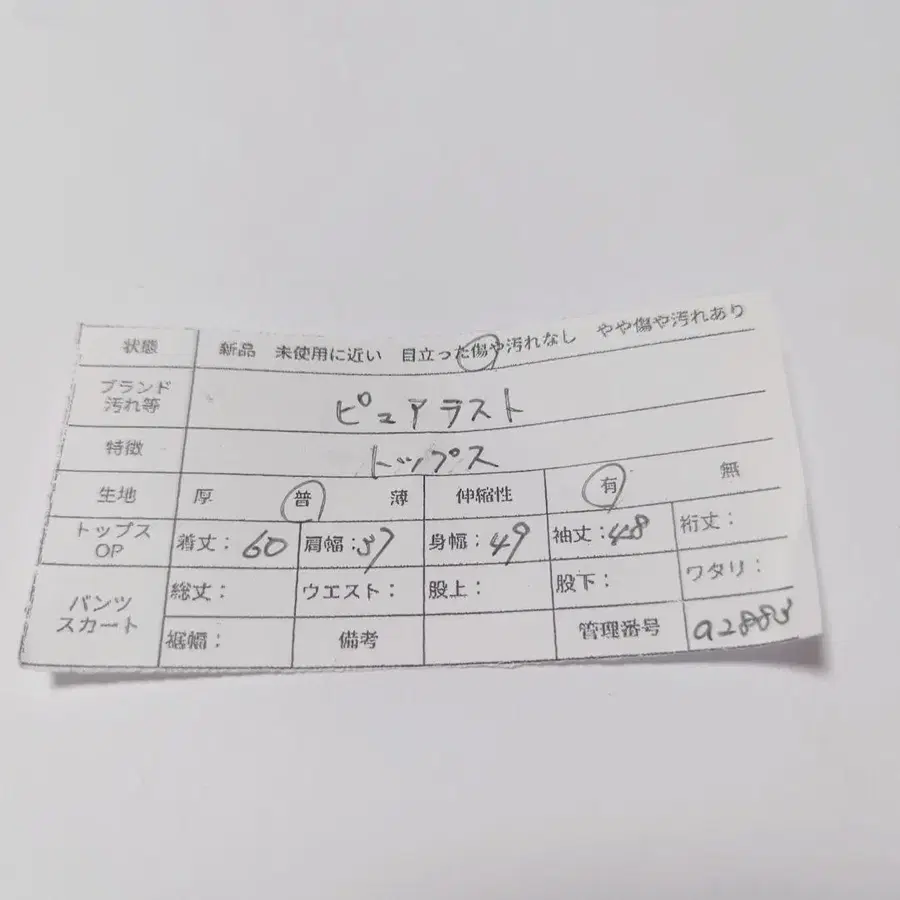 状態 新品 未使用に近い 目立った傷や汚れなし やや傷や汚れあり
ブランド
汚れ等 ピュアラスト
特徴 トップス
生地 厚 普 薄 伸縮性 有 無
トップス
OP 着丈: 60 肩幅: 37 身幅: 49 袖丈: 48 裄丈:
パンツ
スカート 総丈: ウエスト: 股上: 股下: ワタリ:
裾幅: 備考 管理番号 a2883